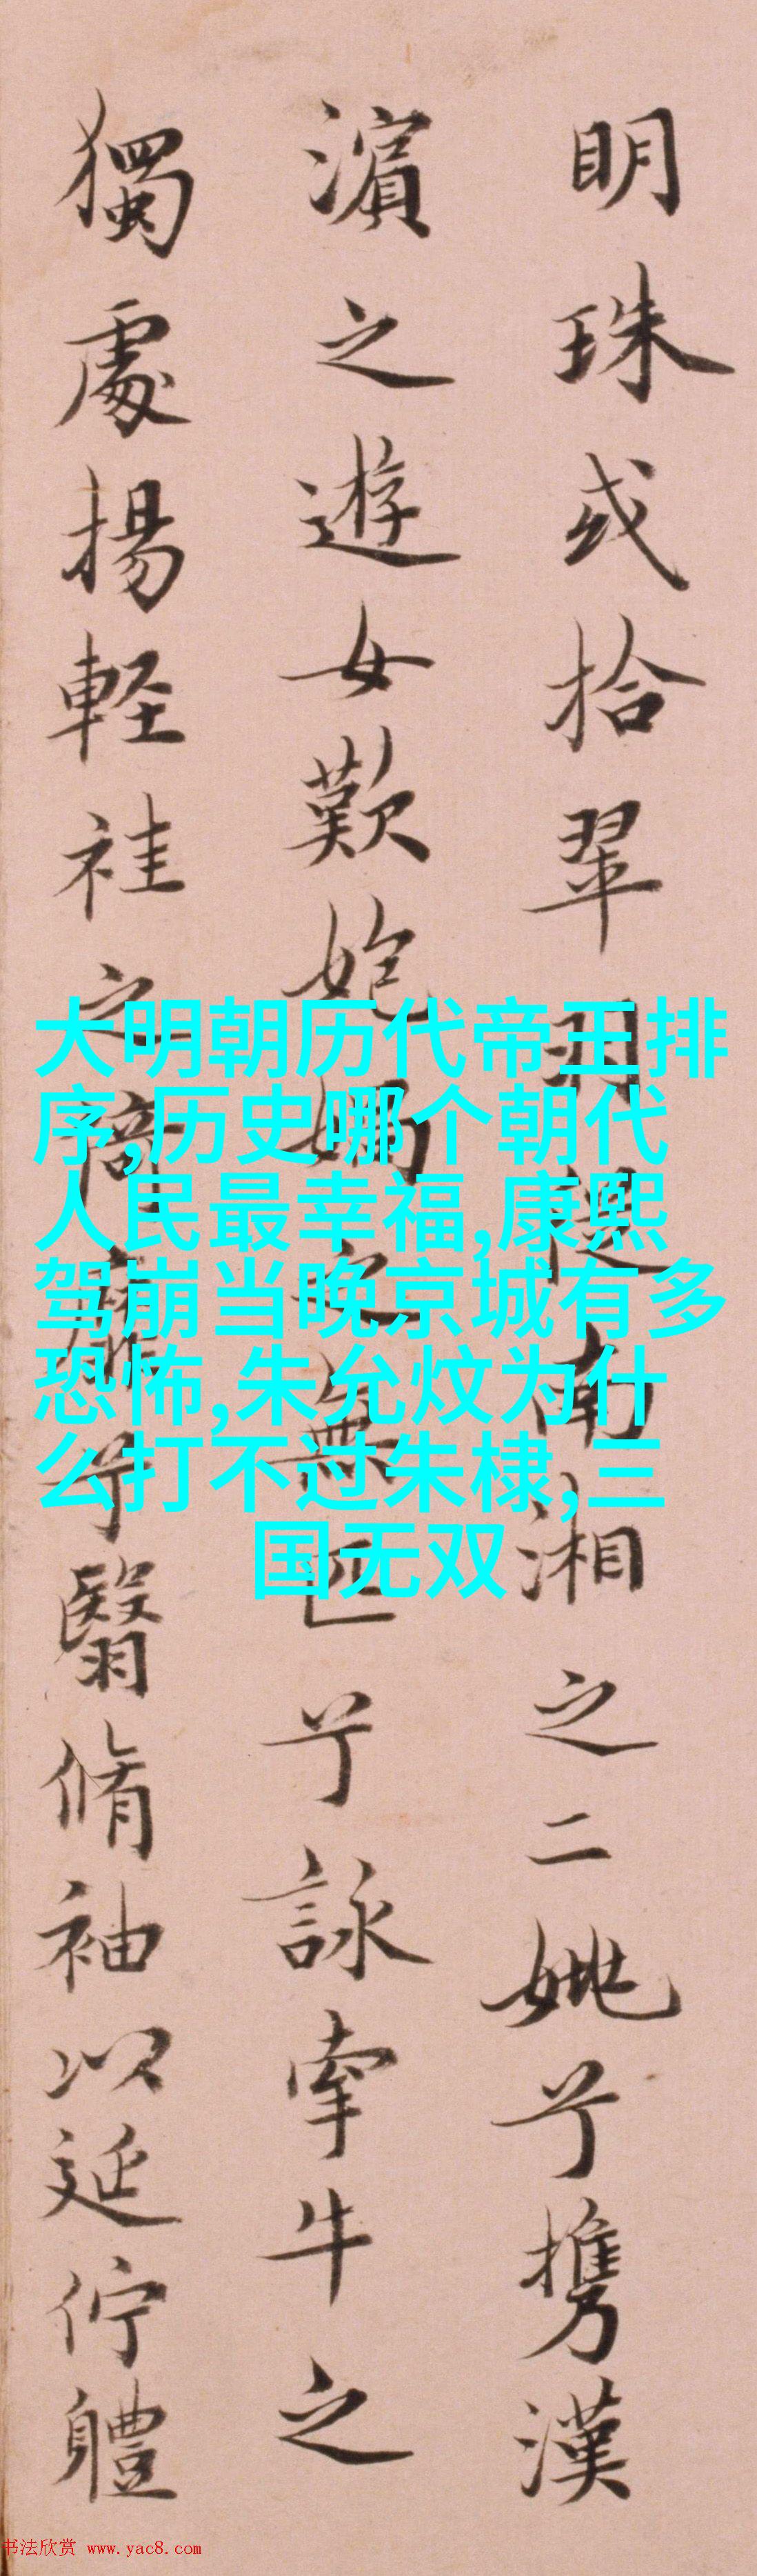 明珠或拾翠羽從南湘之二兮携漢
濵之遊女歎媧之無匹兮詠牽牛之
獨處揚軽袿之猗靡兮翳脩袖以延佇體
大明朝历代帝王排
序,历史哪个朝代
人民最幸福,康熙
驾崩当晚京城有多
恐怖,朱允炆为什
么打不过朱棣,三
国无双
书法欣赏 www.yac8.com